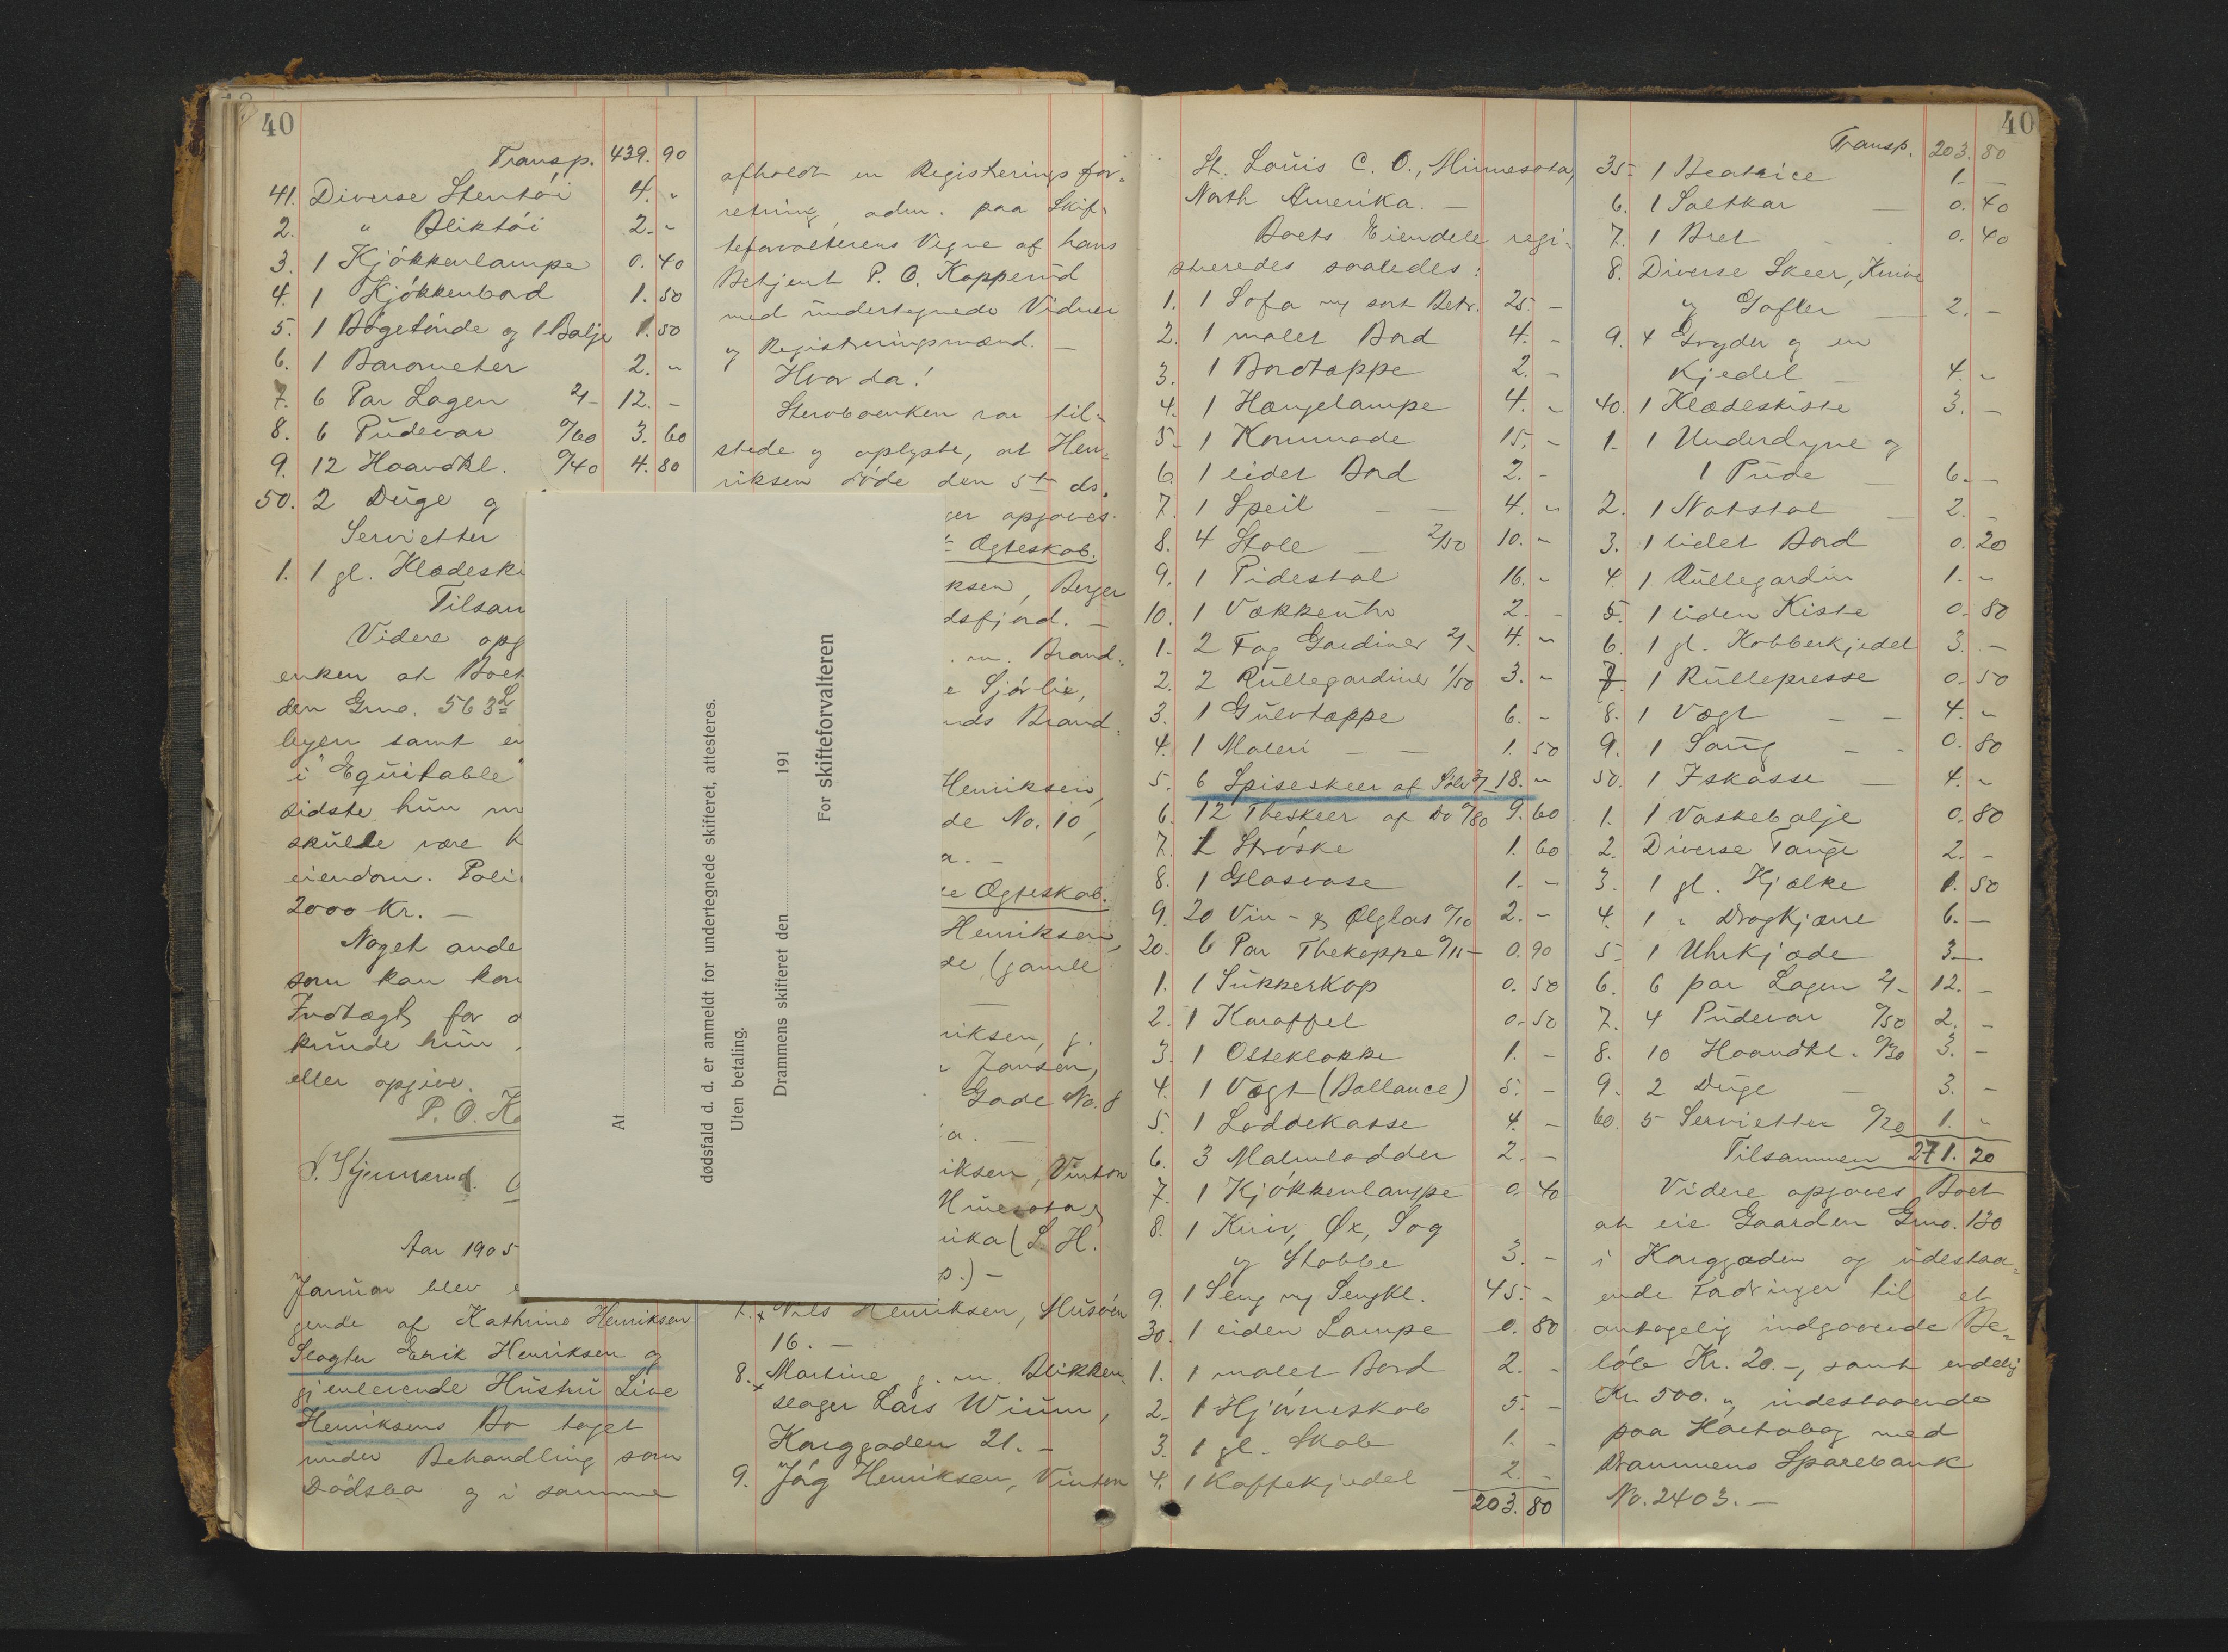 40
Transp. 439. 90
41. Diverse Stentöi 4. "
2. " Bliktöi 2. "
3. 1 Kjökkenlampe 0. 40
4. 1 Kjökkenbord 1. 50
5. 1 Bögetönde og 1 Balje 1. 50
6. 1 Barometer 2. "
7. 6 Par Lagen 2/- 12. -
8. 6 Pudevar 0/60 3. 60
9. 12 Haandkl. 0/40 4. 80
50. 2 Duge og
Servietter
1. 1 gl. Klædeski
Tilsam
Videre opg
enken at Boet
den Grno. 563
legen samt en
i "Equitable"
sidste hun m
skulde være
eiendom. Poli
2000 Kr. -
Noget ande
som kan kom
Indtægt for
kunde hun
eller opgive.
P. O. Ko
Aar 1905
Januar blev
gende af Kathrine Henriksen
Slagter Erik Henriksen og
gjenlevende Hustru Live
Henriksens Bo taget
under Behandling som
Dödsbo og i samme
afholdt en Registerings for-
retning, adm. paa Skif-
teforvalterens Vegne af hans
Betjent P. O. Kopperud
med undertegnede Vidner
og Registreringsmænd. -
Hvor da!
Stervboenken var til-
stede og oplyste, at Hen-
riksen döde den 5te ds.
er opgaves
Ægteskab.
ksen, Berger
dsfjord. -
. m. Brand-
e Sjölie,
nds Brand-
Henriksen,
de No. 10,
a. -
te Ægteskab.
Henriksen,
de (gamle
riksen, g.
Jansen,
Gade No. 8
a. -
iksen, Vinton
rika (S. H.
o.) -
Nils Henriksen, Husöen
16. -
8. Martine g. m. Blikken-
slager Lars Wium,
Konggaden 21. -
9. Jög Henriksen, Vinton
At
dødsfald d. d. er anmeldt for undertegnede skifteret, attesteres.
Uten betaling.
Drammens skifteret den 191
For skifteforvalteren
40
St. Louis C. O., Minnesota,
North Amerika. -
Boets Eiendele regi-
streredes saaledes:
1. 1 Sofa og sort Betr. 25. -
2. 1 malet Bord 4. -
3. 1 Bordtæppe 2. -
4. 1 Hængelampe 4. "
5. 1 Kommode 15. -
6. 1 lidet Bord 2. -
7. 1 Speil - - 4. "
8. 4 Stole - 2/50 10. "
9. 1 Pidestal 16. "
10. 1 Vækkeuhr 2. -
1. 2 Fag Gardiner 2/- 4. "
2. 2 Rullegardiner 1/50 3. "
3. 1 Gulvtæppe 6. -
4. 1 Maleri - - 1. 50
5. 6 Spiseskeer af Sölv 3/- 18. "
6. 12 Theskeer af Do 0/80 9. 60
7. 2 Ströske 1. 60
8. 1 Glasvase 1. -
9. 20 Vin- & Ølglas 0/10 2. -
20. 6 Par Thekoppe 0/15 - 0. 90
1. 1 Sukkerkop 0. 50
2. 1 Karaffel 0. 50
3. 1 Osteklokke 1. -
4. 1 Vægt (Ballance) 5. -
5. 1 Loddekasse 4. -
6. 3 Malmlodder 2. -
7. 1 Kjökkenlampe 0. 40
8. 1 Kniv, Øx, Sag
og Stabbe 3. -
9. 1 Seng og Sengkl. 45. -
30. 1 liden Lampe 0. 80
1. 1 malet Bord 2. -
2. 1 Hjörneskab 5. -
3. 1 gl. Skab 1. -
4. 1 Kaffekjedel 2. -
203. 80
40
Transp. 203. 80
35. 1 Beatrice 1. -
6. 1 Saltkar - 0. 40
7. 1 Bret 0. 40
8. Diverse Skeer, Knive
og Gafler - 2. -
9. 4 Gryder og en
Kjedel - 4. "
40. 1 Klædeskiste 3. -
1. 1 Underdyne og
1 Pude - 6. -
2. 1 Natstol - 2. -
3. 1 lidet Bord 0. 20
4. 1 Rullegardin 1. "
5. 1 liden Kiste 0. 80
6. 1 gl. Kobberkjedel 3. -
7. 1 Rullepresse 0. 50
8. 1 Vægt - - 4. "
9. 1 Saug - - 0. 80
50. 1 Iskasse - 4. "
1. 1 Vaskebalje 0. 80
2. Diverse Tauge 2. -
3. 1 gl. Kjælke 1. 50
4. 1 " Dragkjærre 6. -
5. 1 Uhrkjæde 3. -
6. 6 par Lagen 2/- 12. -
7. 4 Pudevar 0/50 2. -
8. 10 Haandkl. 0/30 3. -
9. 2 Duge - 3. -
60. 5 Servietter 0/20 1. "
Tilsammen 271. 20
Videre opgaves Boet
at eie Gaarden Grno. 130
i Konggaden og udestaa-
ende Fordringer til et
antagelig indgaaende Be-
löb Kr. 20.-, samt endelig
Kr. 500. ", indestaaende
paa Kontrabog med
Drammens Sparebank
No. 2403. -